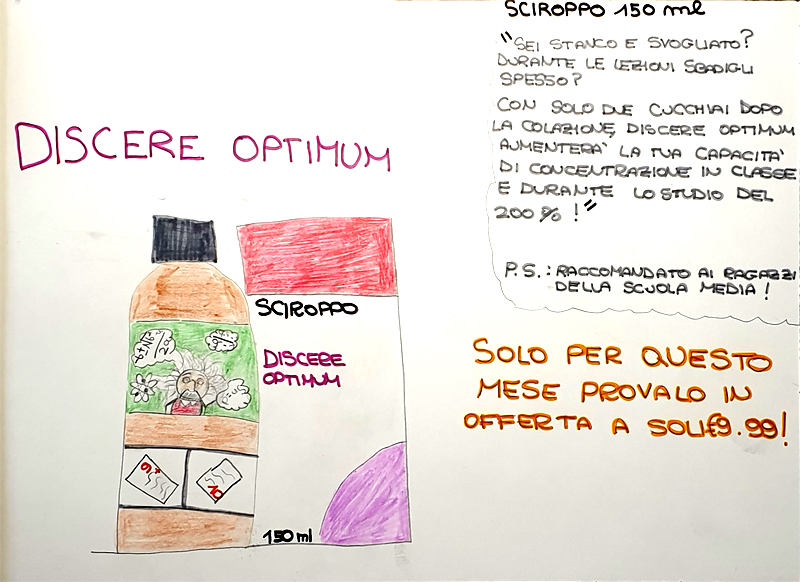 SCIROPPO 150 ml
"SEI STANCO E SVOGLIATO?
DURANTE LE LEZIONI SBADIGLI
SPESSO?
CON SOLO DUE CUCCHIAI DOPO
LA COLAZIONE, DISCERE OPTIMUM
AUMENTERA' LA TUA CAPACITA'
DI CONCENTRAZIONE IN CLASSE
E DURANTE LO STUDIO DEL
200 % !"
P.S.: RACCOMANDATO AI RAGAZZI
DELLA SCUOLA MEDIA !
DISCERE OPTIMUM
SCIROPPO
DISCERE
OPTIMUM
9+
10
150 ml
SOLO PER QUESTO
MESE PROVALO IN
OFFERTA A SOLI €9.99!